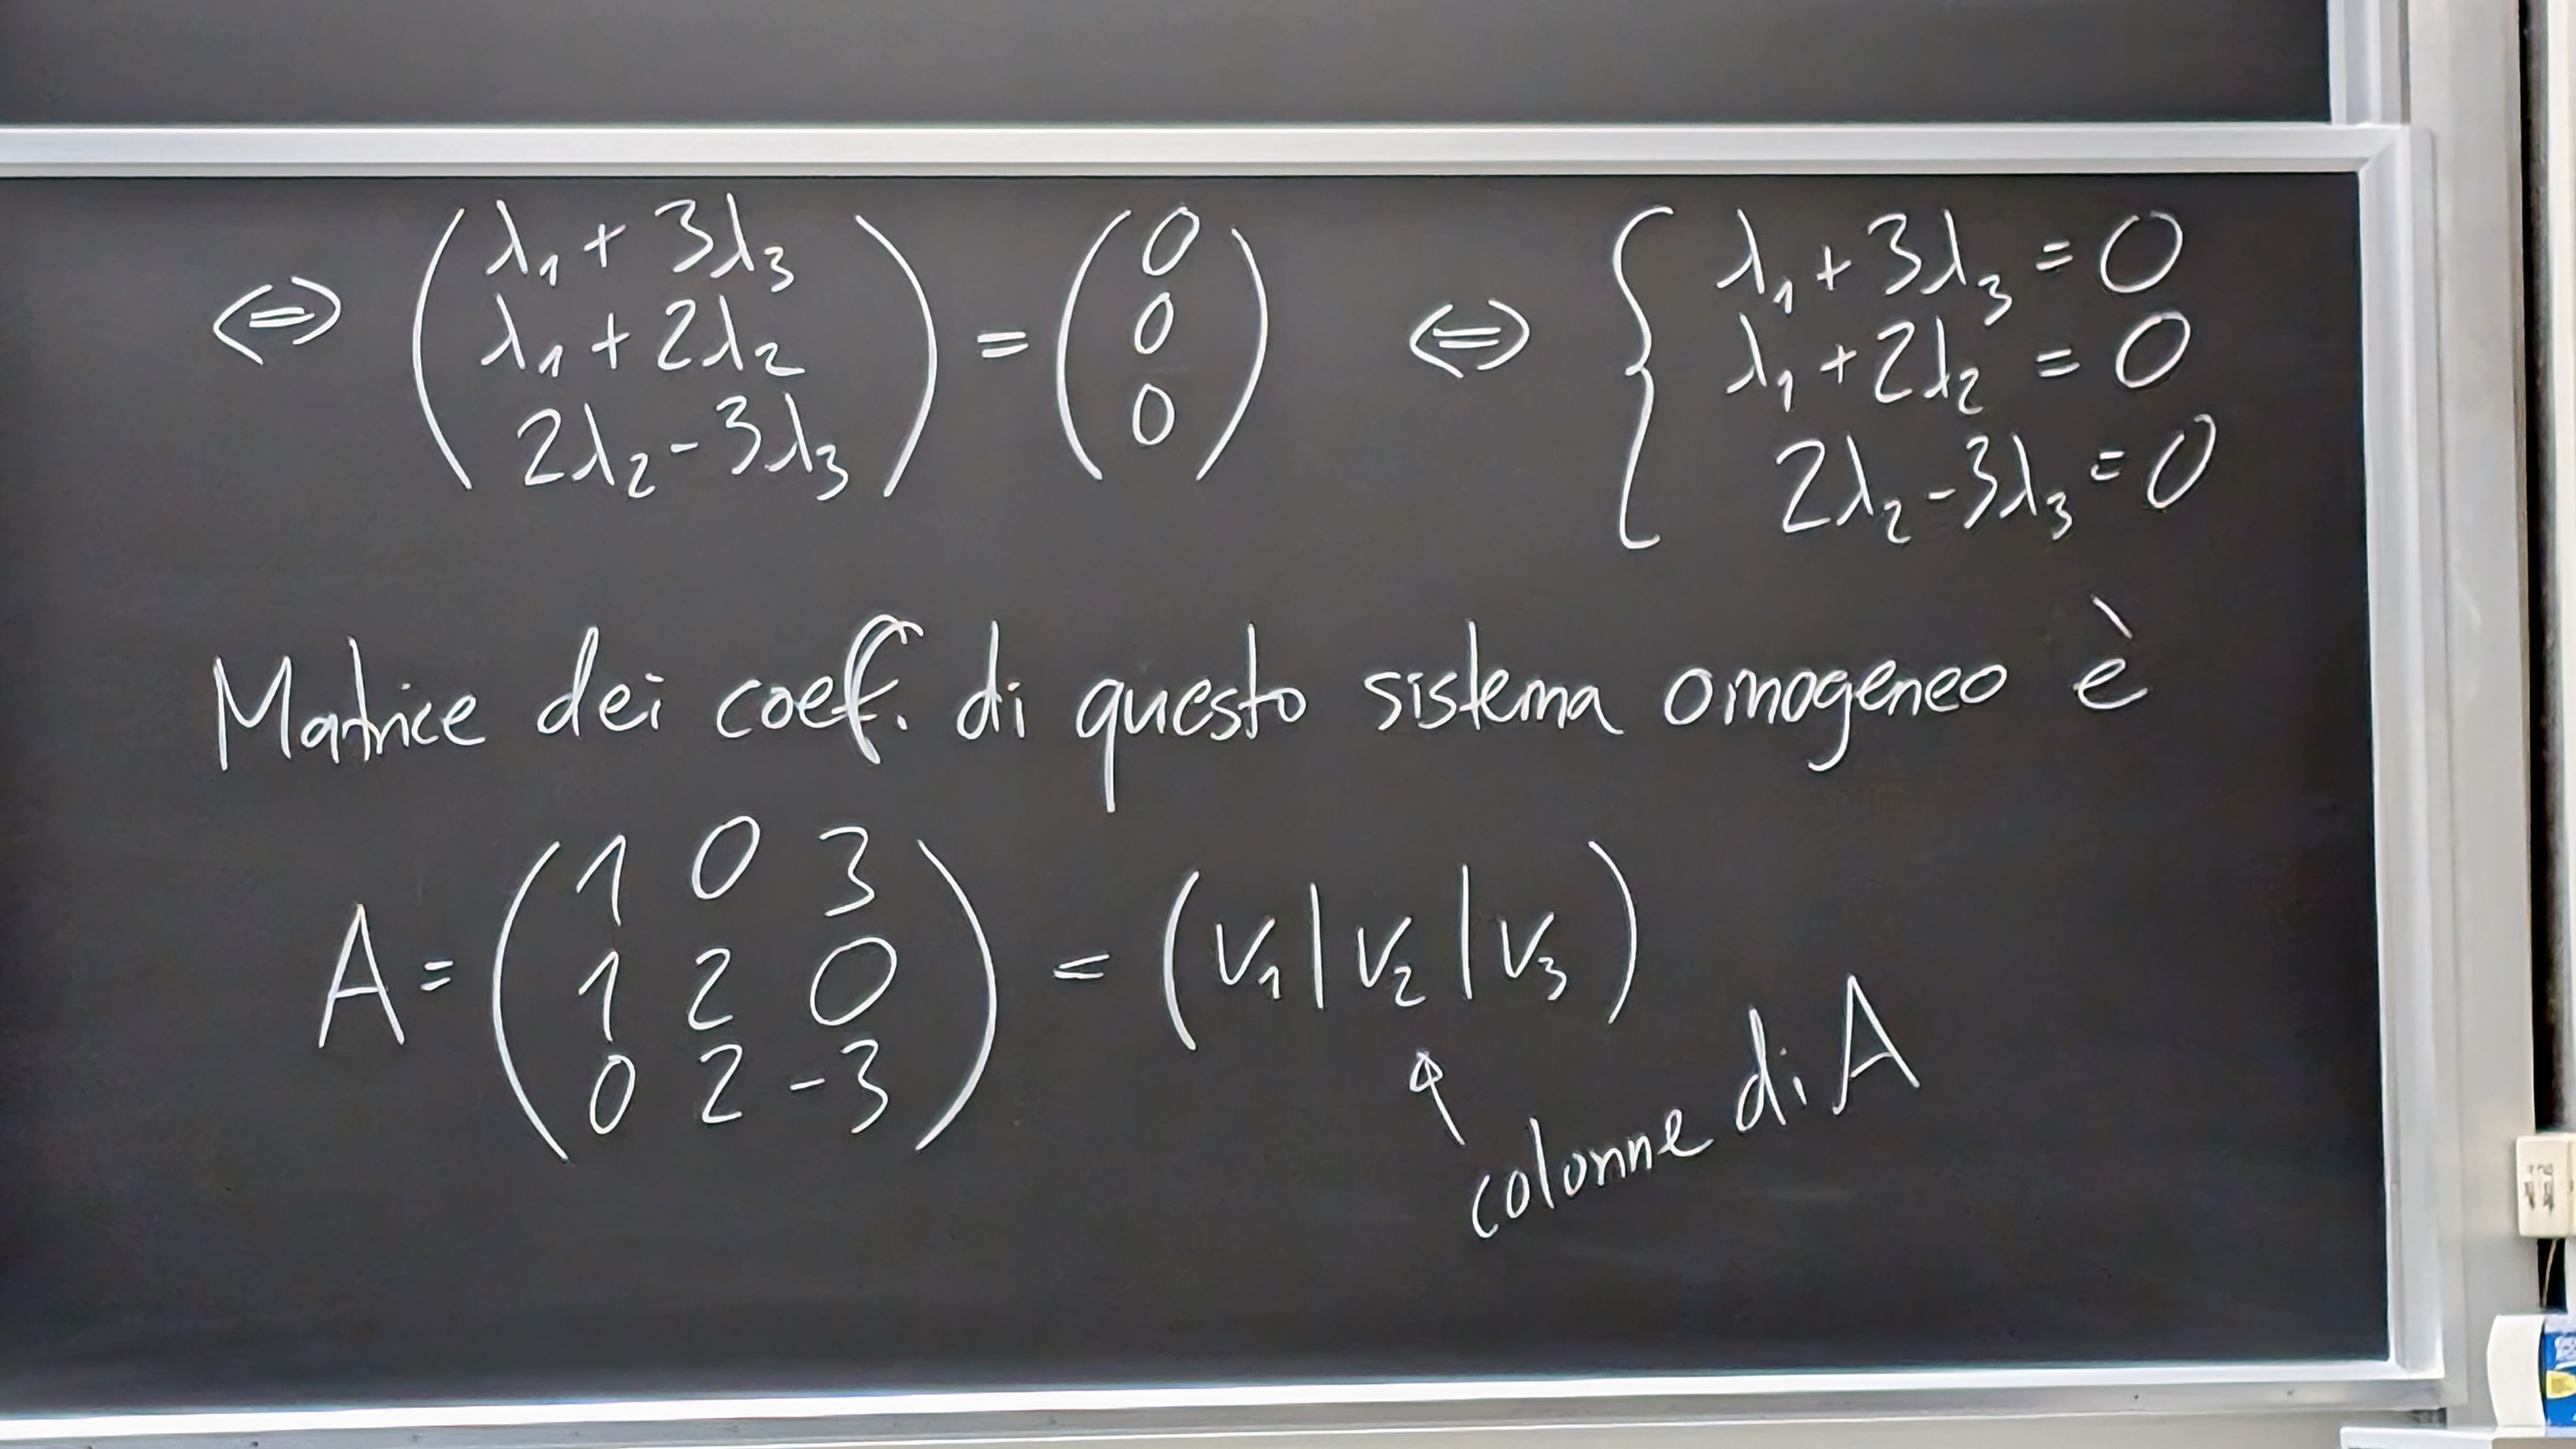 ⇔ (λ₁ + 3λ₃
λ₁ + 2λ₂
2λ₂ - 3λ₃) = (0
0
0) ⇔ { λ₁ + 3λ₃ = 0
λ₁ + 2λ₂ = 0
2λ₂ - 3λ₃ = 0
Matrice dei coef. di questo sistema omogeneo è
A = (1 0 3
1 2 0
0 2 -3) = (v₁ | v₂ | v₃)
↑
colonne di A